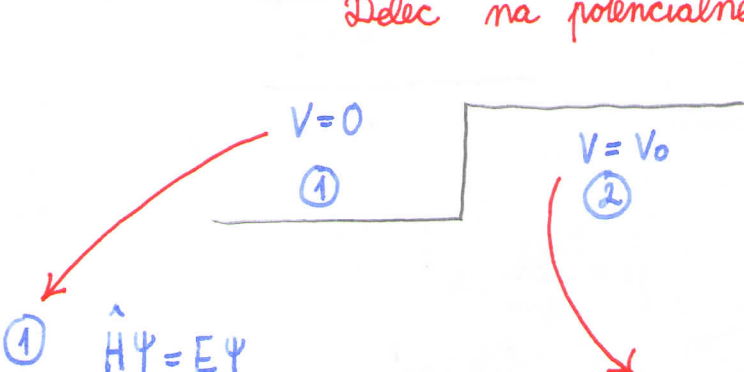 Delec na potencialne
V=0
V=V₀
①
②
① ĤΨ=EΨ